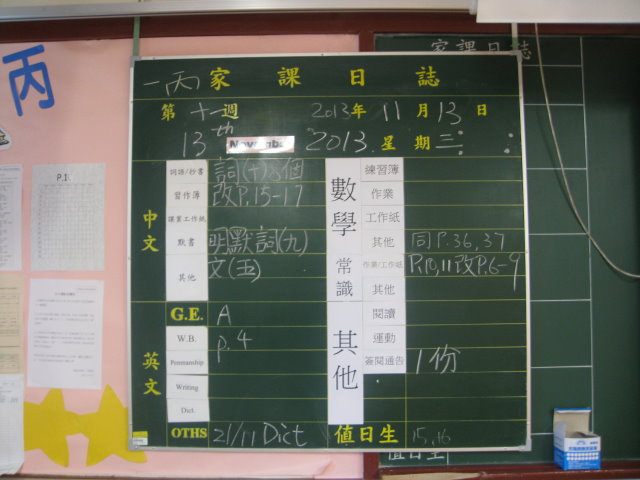 丙
家課日誌
一丙家課日誌
第十一週 2013年11月13日
13th November 2013. 星期三
中文
詞語/抄書 詞(十)8個
習作簿 改P.15-17
課業工作紙
默書 明默詞(九)
其他 文(五)
英文
G.E. A
W.B. p.4
Penmanship
Writing
Dict.
OTHS 21/11 Dict
數學
練習簿
作業
工作紙
其他 同P.36,37
常識
作業/工作紙 P.10,11改P.6-9
其他
其他
閱讀
運動
簽閱通告 1份
值日生 15,16
值日生
P.1